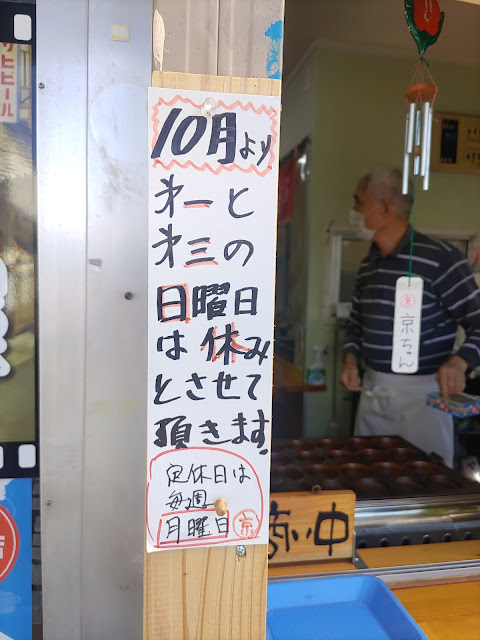 10月より
才一と
才三の
日曜日
は休み
とさせて
頂きます。
定休日は
毎週
月曜日
京
京ちゃん
商い中
サヒビール